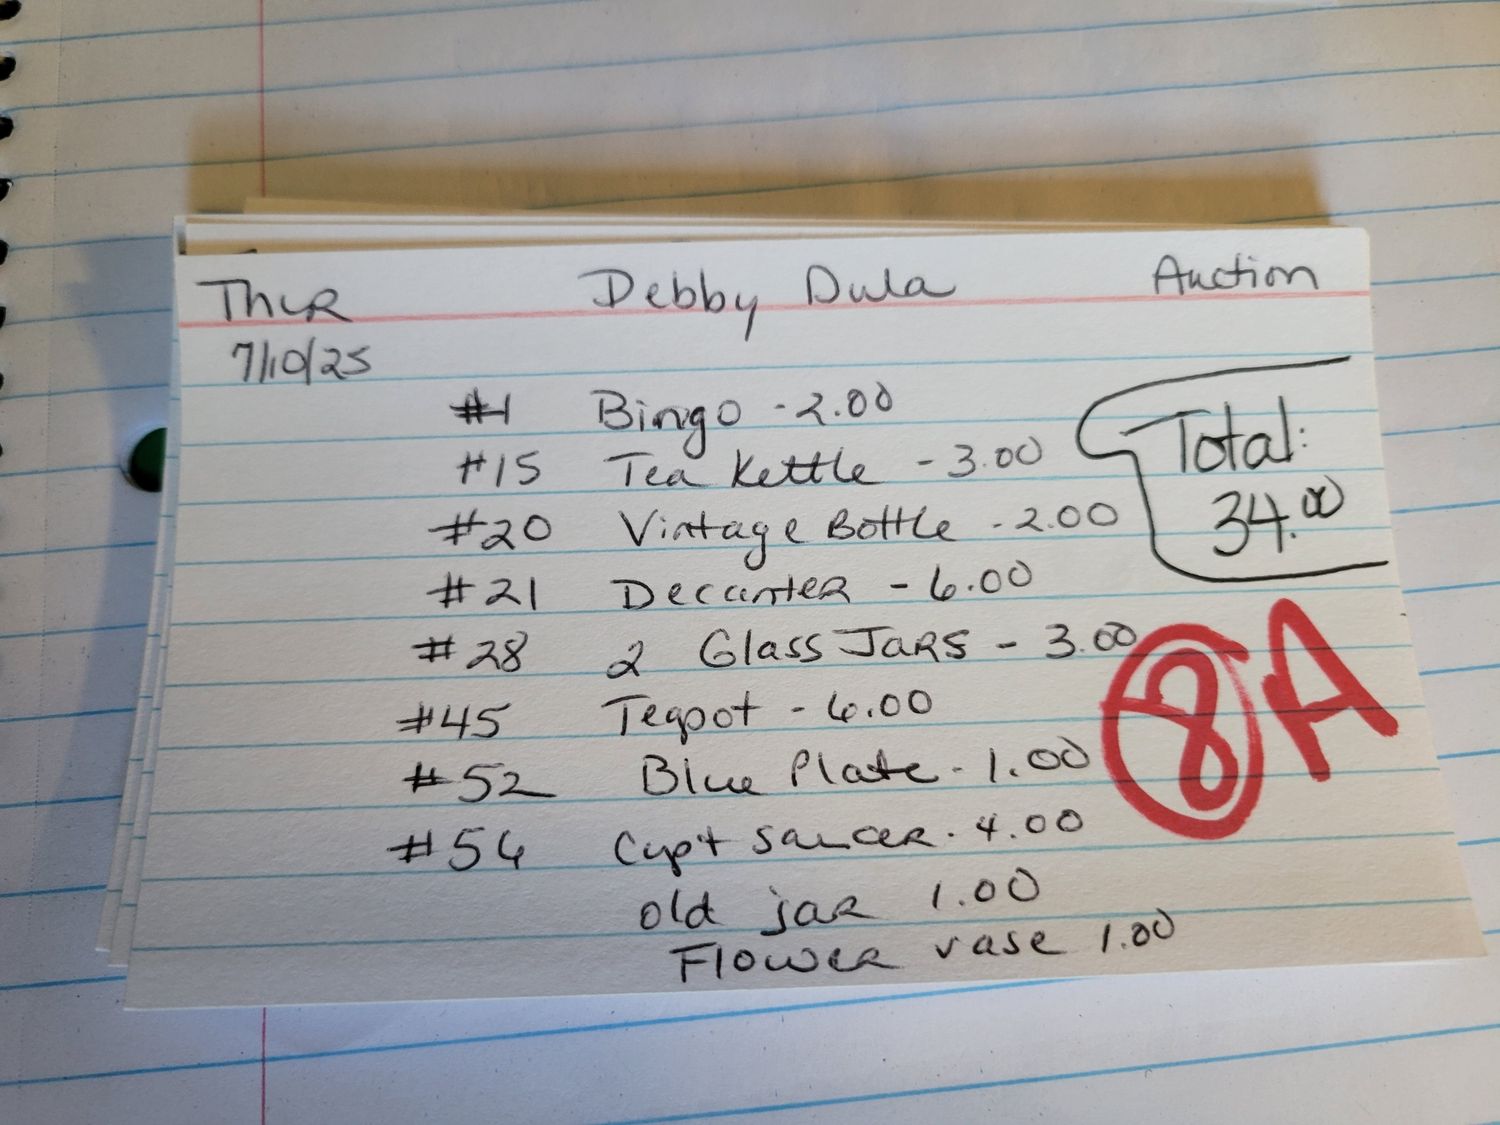 Thur Debby Dula Auction
7/10/25
#1 Bingo - 2.00
#15 Tea Kettle - 3.00
#20 Vintage Bottle - 2.00
#21 Decanter - 6.00
#28 2 Glass Jars - 3.00
#45 Teapot - 6.00
#52 Blue Plate - 1.00
#54 Cup + saucer - 4.00
old jar 1.00
Flower vase 1.00
Total:
34.00
8 A